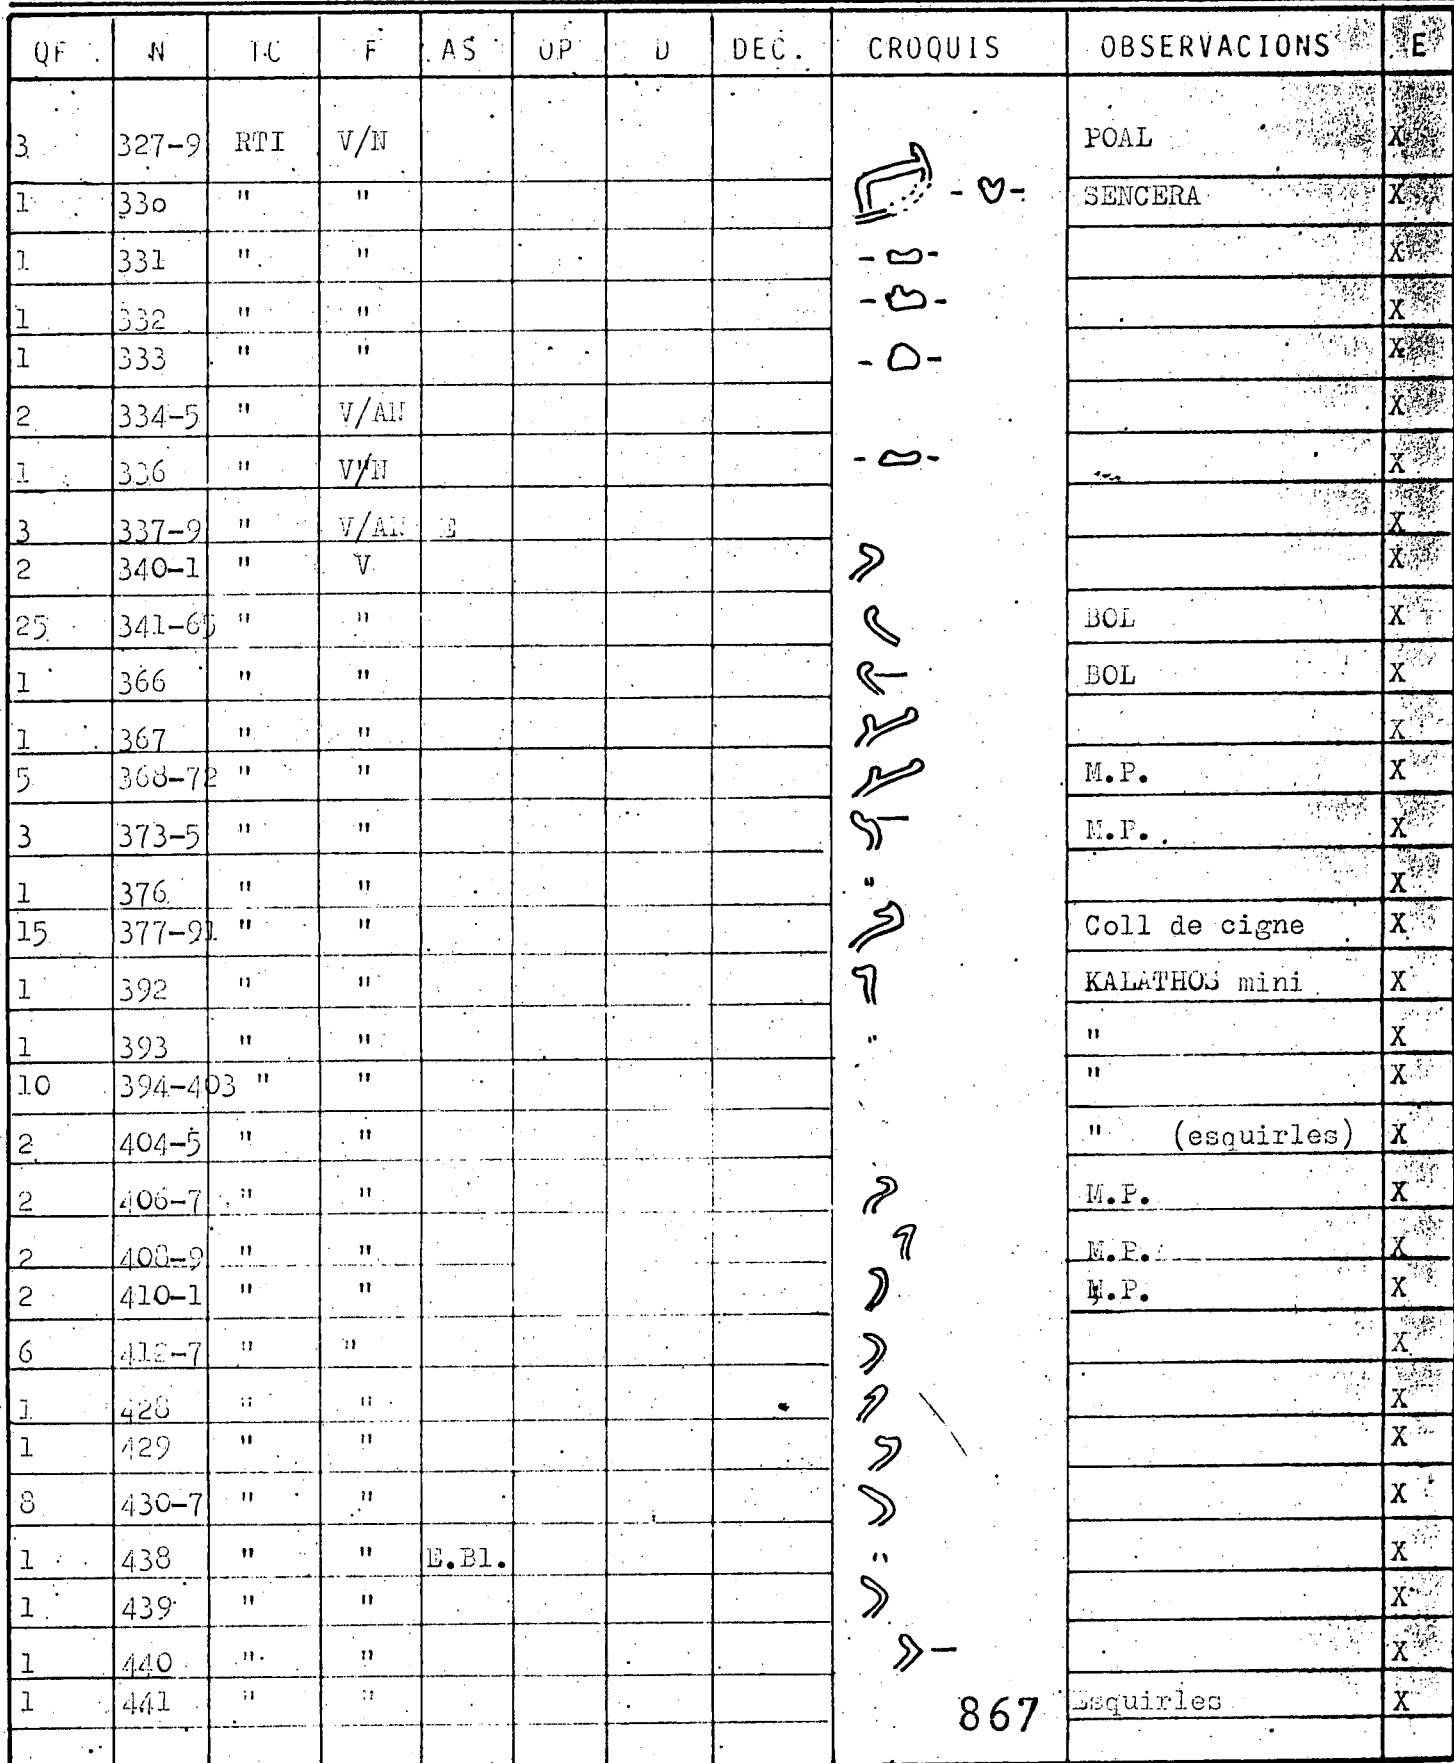 QF N TC F AS OP D DEC. CROQUIS OBSERVACIONS E
3 327-9 RTI V/N POAL X
1 33o " " - - SENCERA X
1 331 " " - - X
1 332 " " - - X
1 333 " " - - X
2 334-5 " V/AN X
1 336 " V/N - - X
3 337-9 " V/AN E X
2 340-1 " V X
25 341-65 " " BOL X
1 366 " " BOL X
1 367 " " X
5 368-72 " " M.P. X
3 373-5 " " M.P. X
1 376 " " " X
15 377-91 " " Coll de cigne X
1 392 " " KALATHOS mini X
1 393 " " " " X
10 394-403 " " " X
2 404-5 " " " (esquirles) X
2 406-7 " " M.P. X
2 408-9 " " M.P. X
2 410-1 " " M.P. X
6 412-7 " " X
1 428 " " X
1 429 " " X
8 430-7 " " X
1 438 " " E.Bl. " X
1 439 " " X
1 440 " " X
1 441 " " Esquirles X
867